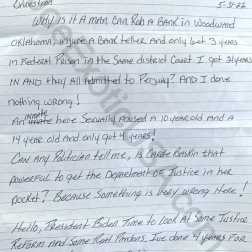 Question 5-11-22
Why is it A man can Rob A Bank in Woodward
OKlahoma, injure A Bank teller And only Get 3 years
in Federal Prison in the Same district Court I got 21 years
IN AND they All Admitted to Perjury? And I done
nothing wrong!
An inmate here Sexually Abused A 10 year old and A
14 year old And only got 4 years!
CAN Any Politician tell me, Is Carole Baskin that
powerful to get the Department of Justice in her
pocket? Because Something is Very wrong here!
Hello, President Biden Time to Look At Some Justice
Reform And Some Real Pardons, I've done 4 years For